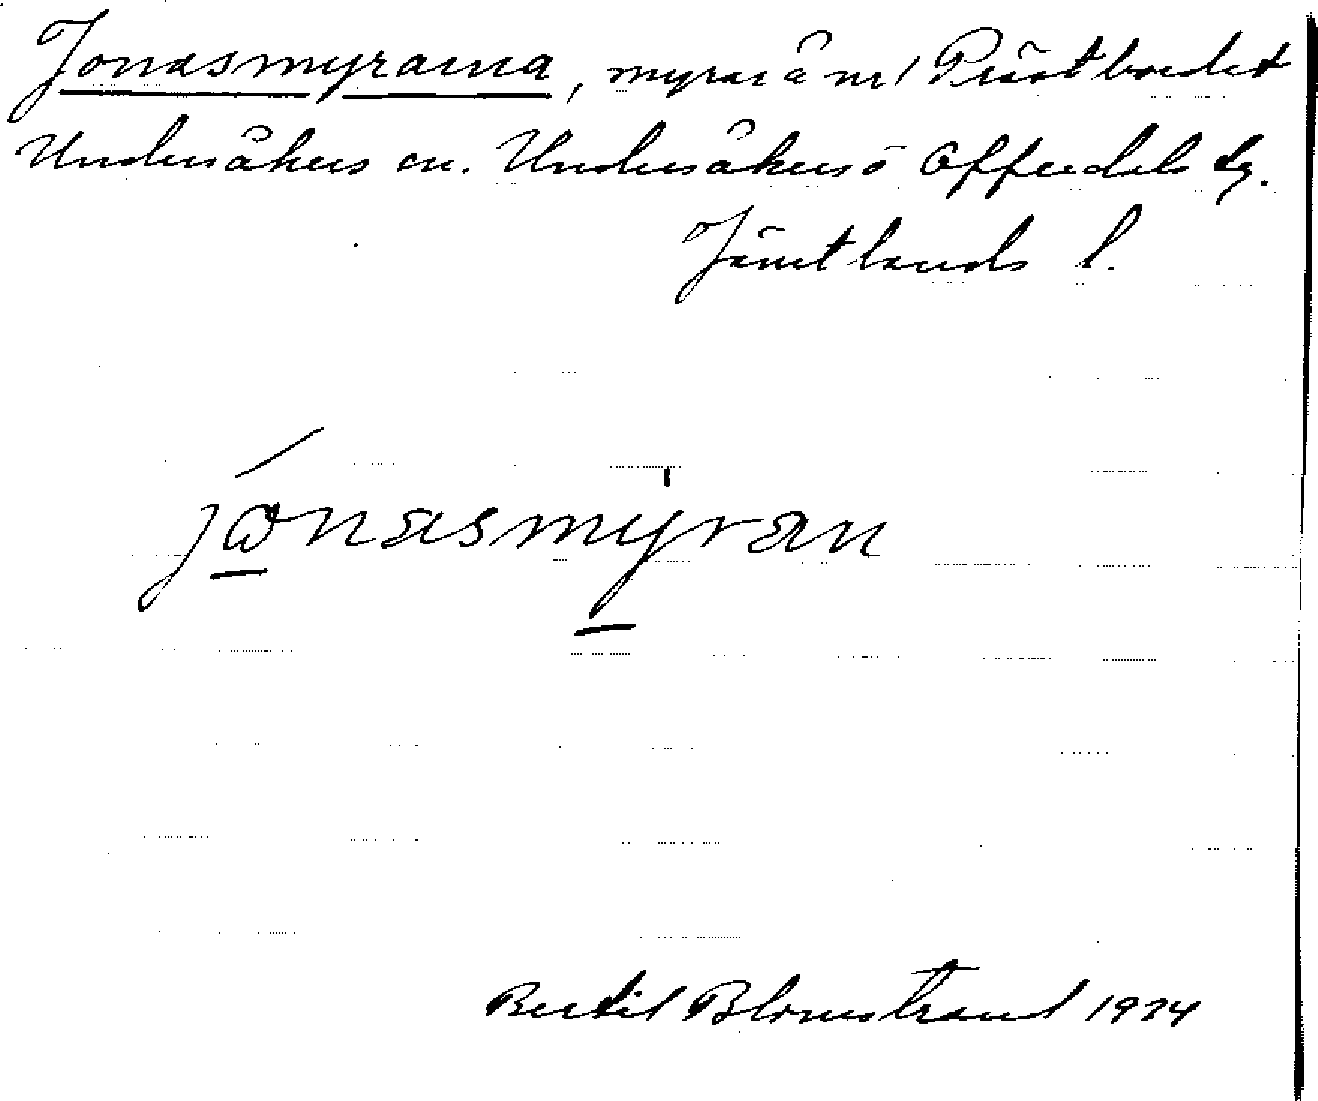 Jonasmyrarna, myrar å nr 1 Prästbordet
Undersåkers sn. Undersåkers o Offerdals tg.
Jämtlands l.
jɷnasmyran
Bertil Blomstrand 1924